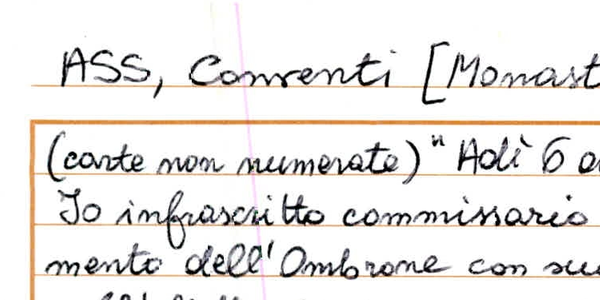 ASS, Conventi [Monast
(carte non numerate) "Adì 6 a
Io infrascritto commissario
mento dell'Ombrone con su